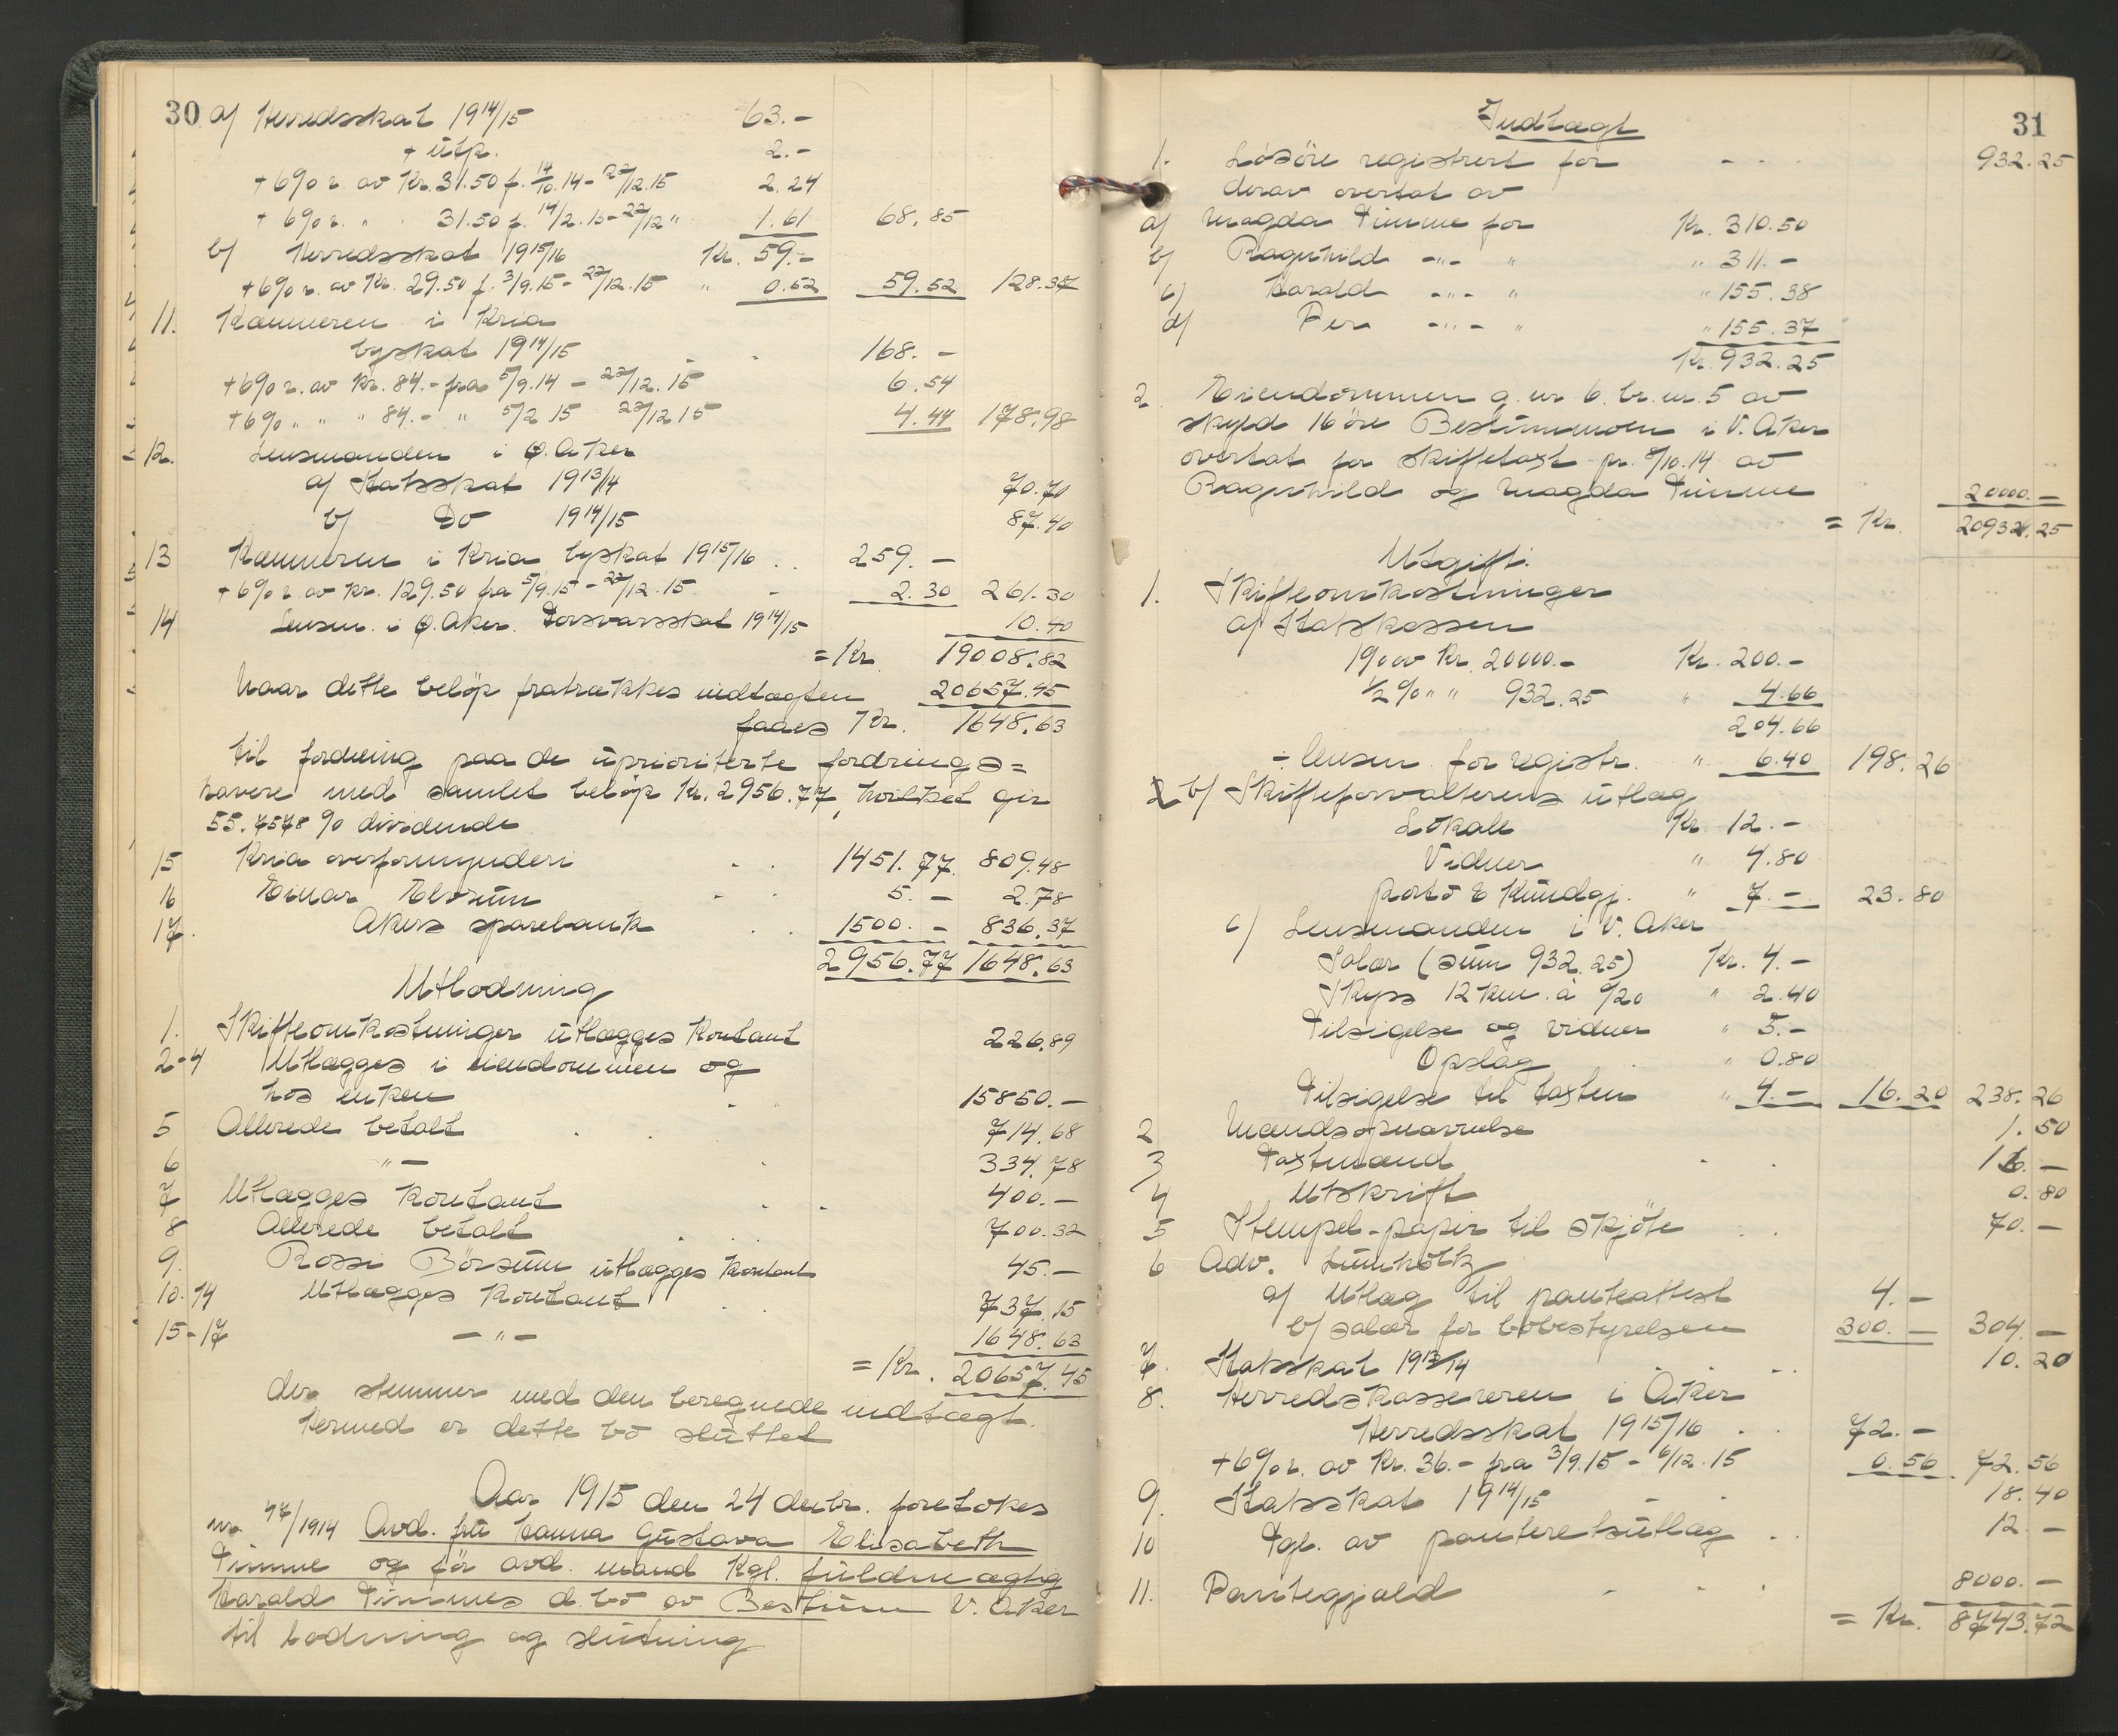 30 a/ Herredsskat 1914/15 63.-
+ utp. 2.-
+ 6% r. av Kr. 31.50 f. 14/10.14 - 22/12.15 2.24
+ 6% r. " " 31.50 f. 14/2.15 - 22/12 " 1.61 68.85
b/ Herredsskat 1915/16 Kr. 59.-
+ 6% r. av Kr. 29.50 f. 3/9.15 - 22/12.15 " 0.52 59.52 128.37
11. Kæmneren i Kria
byskat 1914/15 - - 168.-
+ 6% r. av Kr. 84.- fra 5/9.14 - 22/12.15 6.54
+ 6% " " " 84.- " 5/2 15 22/12 15 4.44 178.98
12. Lensmanden i Ø. Aker
a/ Statsskat 1913/14 70.70
b/ Do 1914/15 87.40
13 Kæmneren i Kria byskat 1915/16 . . 259.-
+ 6% r. av Kr. 129.50 fra 5/9.15 - 22/12.15 - 2.30 261.30
14 Lensm. i Ø. Aker. Forsvarsskat 1914/15 10.40
= Kr. 19008.82
Naar dette beløp fratrækkes indtægten 20657.45
faaes Kr. 1648.63
til fordeling paa de uprioriterte fordrings=
havere med samlet beløp Kr. 2956.77, hvilket gir
55.7578 % dividende
15 Kria overformynderi . . 1451.77 809.48
16 Einar Elvsum - - 5.- 2.78
17. Akers sparebank . . 1500.- 836.37
2956.77 1648.63
Utlodning
1. Skifteomkostninger utlægges kontant 226.89
2-4 Utlægges i eiendommen og
hos enken - . 15850.-
5 Allerede betalt . . 714.68
6 " - . 334.78
7 Utlægges kontant . . 400.-
8 Allerede betalt . . 700.32
9. Rossi Børsum utlægges kontant 45.-
10-14 Utlægges kontant . . 737.15
15-17 - " - 1648.63
= Kr. 20657.45
der stemmer med den beregnede indtægt.
Hermed er dette bo sluttet
Aar 1915 den 24 decbr. foretokes
nr. 47/1914 Avd. fru Hanna Gustava Elisabeth
Timme og før avd. mand Kgl. fuldmægtig
Harald Timmes d. bo av Bestum V. Aker
til lodning og slutning
31
Indtægt
1. Løsøre registrert for - . . 932.25
derav overtat av
a/ Magda Timme for Kr. 310.50
b/ Ragnhild - " - " " 311.-
c/ Harald - " - " " 155.38
d/ Per - " - " " 155.37
Kr. 932.25
2 Eiendommen g. nr. 6 br. nr. 5 av
skyld 16 øre Bestummoen i V. Aker
overtat for skiftetaxt pr. 8/10.14 av
Ragnhild og Magda Timme 20000.-
= Kr. 20932.25
Utgift.
1. Skifteomkostninger
a/ Statskassen
1% av Kr. 20000.- Kr. 200.-
1/2 % " " 932.25 " 4.66
204.66
÷ lensm. for registr. " 6.40 198.26
b/ Skifteforvalterens utlæg
Lokale Kr. 12.-
Vidner " 4.80
porto & Kundgj. " 7.- 23.80
c/ Lensmanden i V. Aker
Salær (sum 932.25) Kr. 4.-
Skyss 12 km. à 0/20 " 2.40
Tilsigelse og vidner " 5.-
Opslag " 0.80
Tilsigelse til taxten " 4.- 16.20 238.26
2 Mændsopnævnelse 1.50
3 Taxtmænd . . 16.-
4 Utskrift 0.80
5 Stempel-papir til skjøte . . 70.-
6 Adv. Lumholtz
a/ Utlæg til panteattest 4.-
b/ salær for bobestyrelsen 300.- 304.-
7. Statsskat 1913/14 . - . . 10.20
8. Herredskassereren i Aker
Herredsskat 1915/16 . . 72.-
+ 6% r. av Kr. 36.- fra 3/9.15 - 6/12.15 0.56 72.56
9. Statsskat 1914/15 - . 18.40
10 Tgl. av panteretsutlæg . . 12.-
11. Pantegjæld - . . 8000.-
= Kr. 8743.72